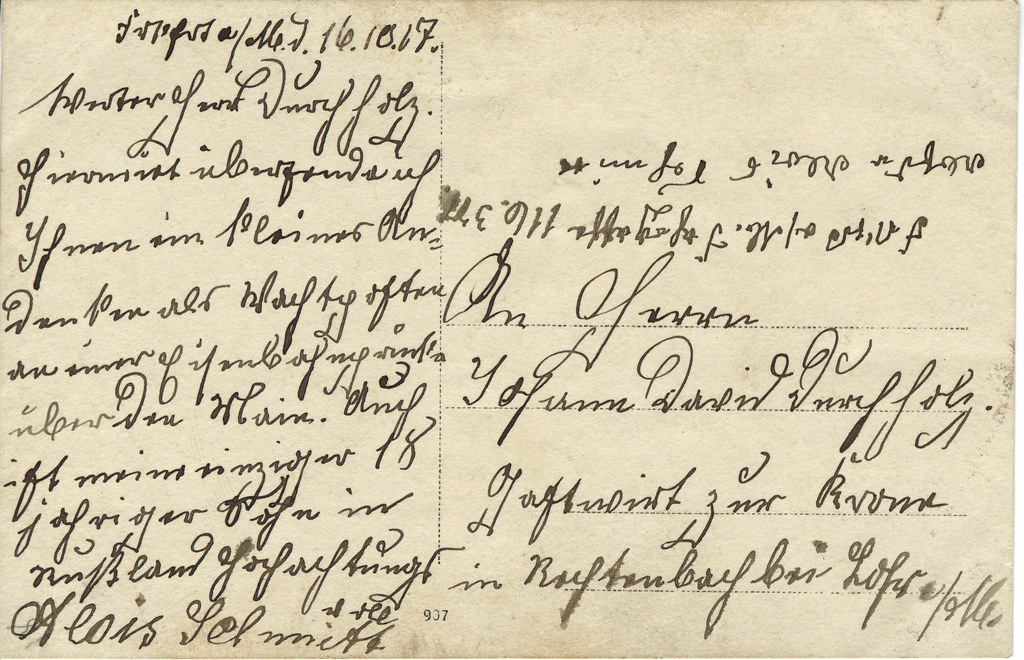 Frkfrt a/M. d. 16.10.17.
Werter Herr Durchholz.
Hiermit übersende ich
Ihnen ein kleines An-
denken als Wachtposten
an einer Eisenbahnbrücke
über den Main. Auch
ist meine einziger 18
jähriger Sohn in
Rußland Hochachtungs
voll
Alois Schmitt
907
An Herrn
Johann David Durchholz.
Gastwirt zur Krone
in Rechtenbach bei Lohr a/M.
Frkfrt a/M. 116. 3
Alois Schmitt